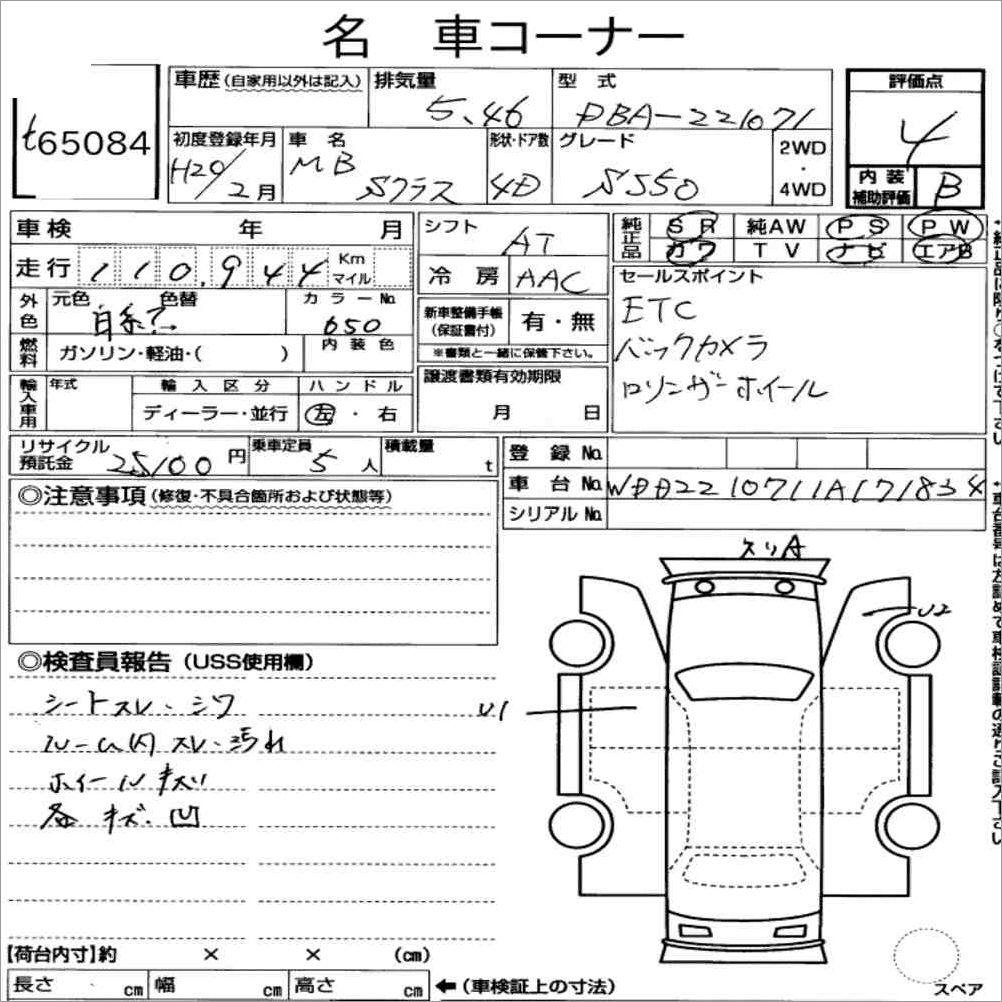 名 車コーナー
t65084
車歴(自家用以外は記入)
排気量
5.46
型 式
DBA-221071
評価点
4
初度登録年月
H20/2月
車 名
MB
Sクラス
形状・ドア数
4D
グレード
S550
2WD
・
4WD
内 装
補助評価
B
車検 年 月
シフト
AT
純正品
SR 純AW PS PW
カワ TV ナビ エアB
走行 110,944 Km マイル
冷 房 AAC
セールスポイント
ETC
バックカメラ
ロリンザーホイール
外色
元色 色替
白系?→
カラーNo.
650
新車整備手帳
(保証書付)
有・無
※書類と一緒に保管下さい。
燃料
ガソリン・軽油・( )
内 装 色
輸入車用
年式
輸 入 区 分
ディーラー・並行
ハ ン ド ル
左 ・ 右
譲渡書類有効期限
月 日
リサイクル
預託金
25100円
乗車定員
5人
積載量
t
登 録 No.
車 台 No. WDD2210711A171834
シリアル No.
◎注意事項(修復・不具合箇所および状態等)
◎検査員報告(USS使用欄)
シートスレ・シワ
ルーム内スレ・汚れ
ホイールキズ
各 キズ・凹
スリA
U2
U1
【荷台内寸】約 × × (cm)
長さ cm 幅 cm 高さ cm ←(車検証上の寸法)
スペア